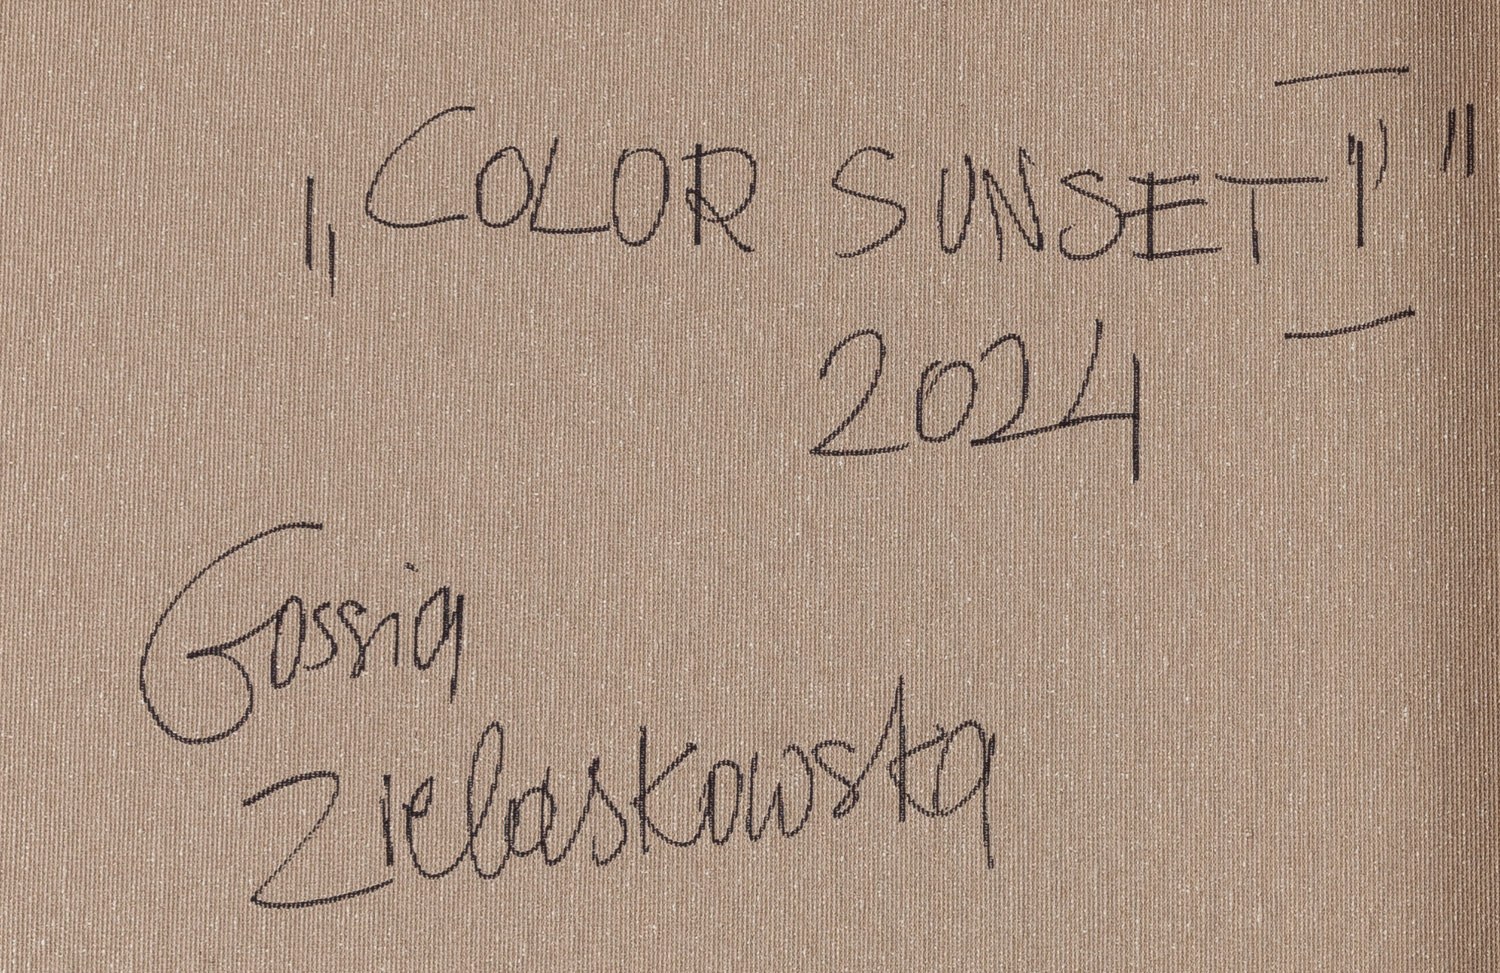 „COLOR SUNSET I"
2024
Gossia
Zielaskowska